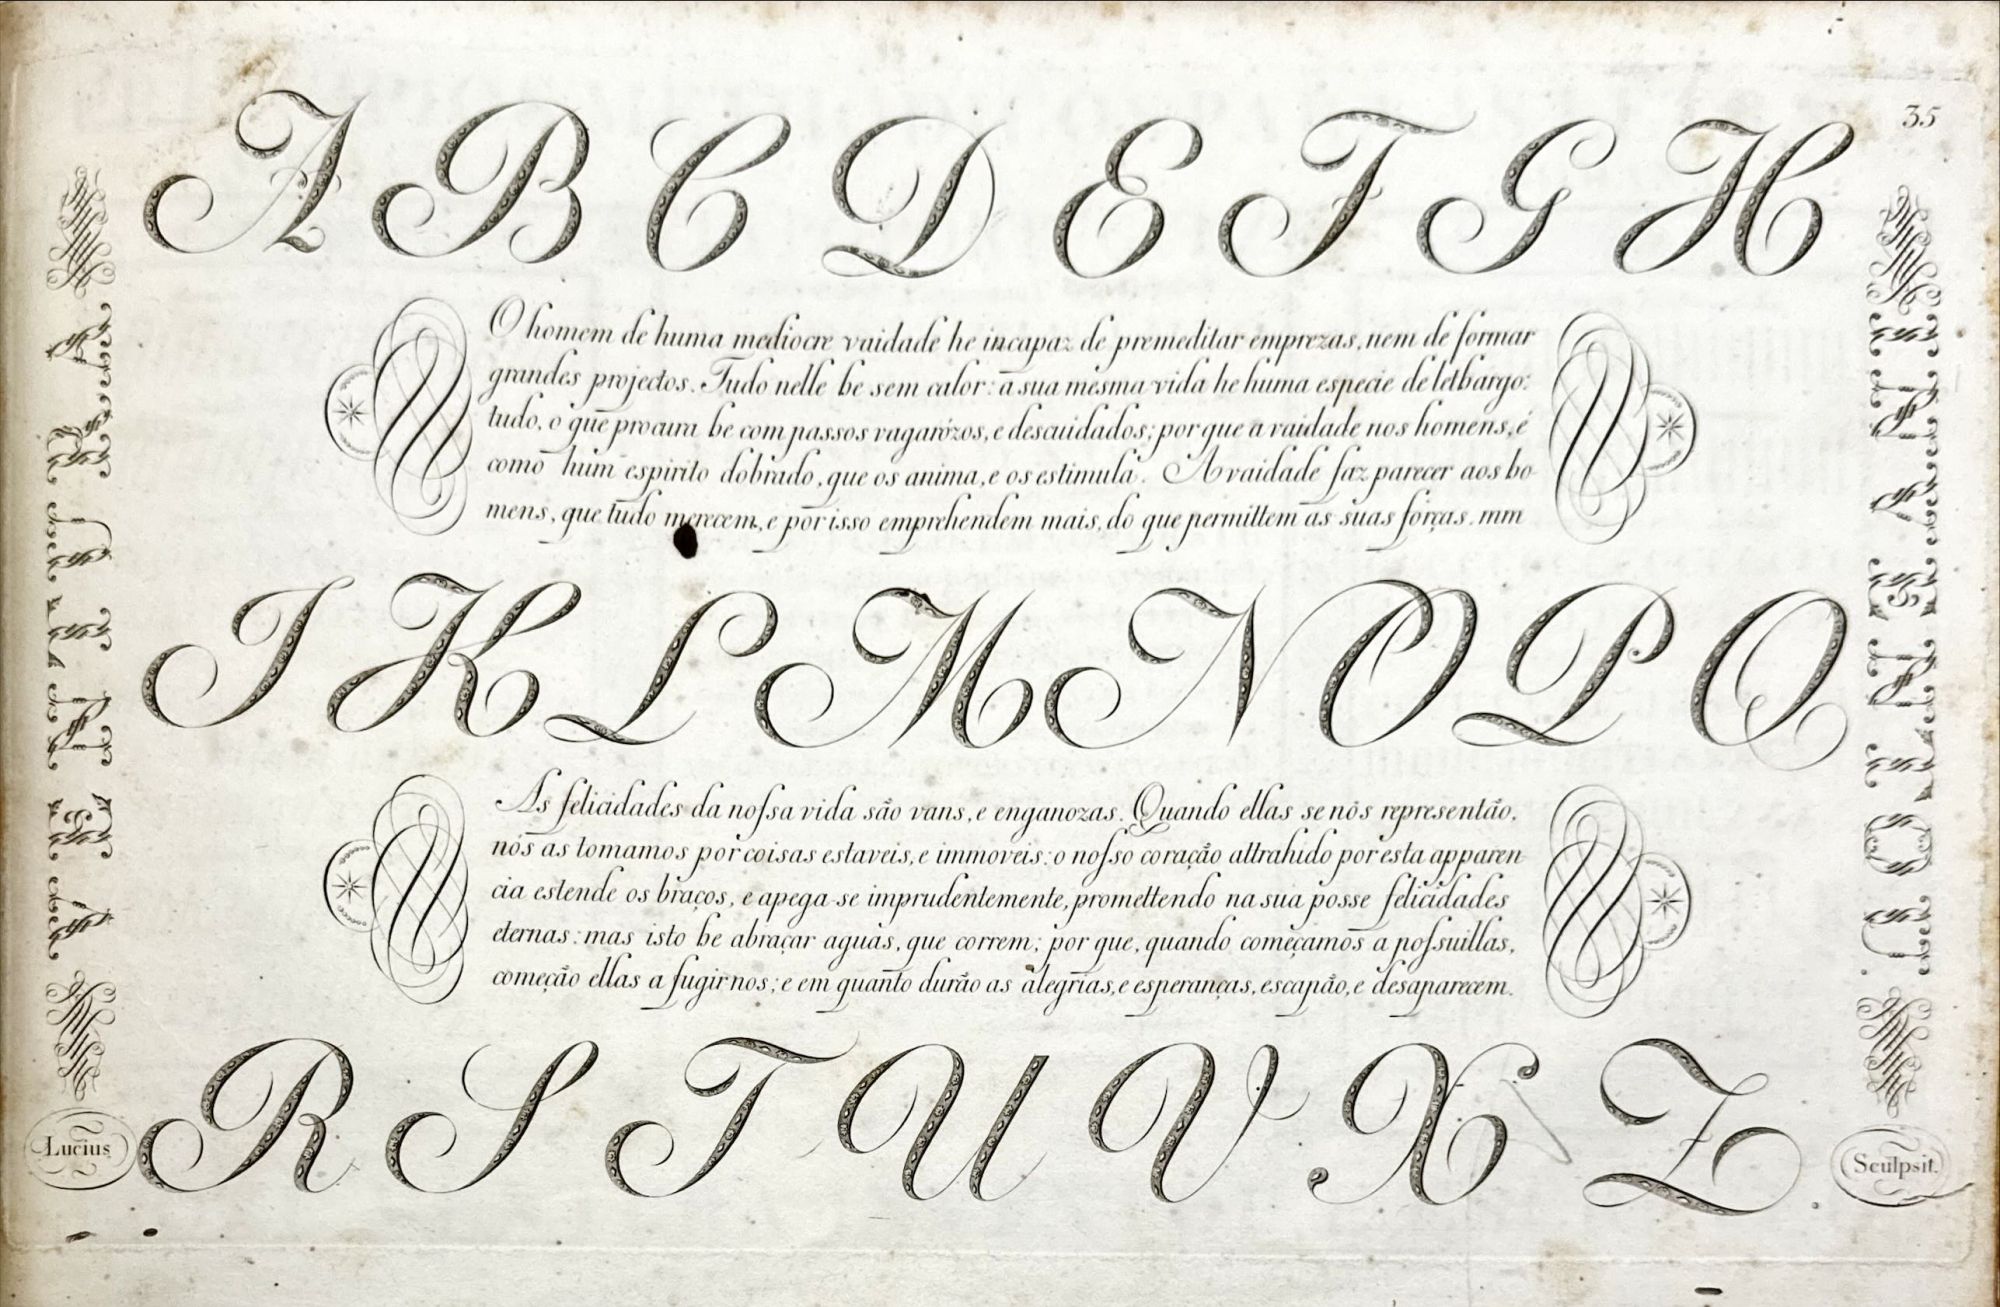 35
A B C D E F G H
VENTURA
INVENTOU
O homem de huma mediocre vaidade he incapaz de premeditar emprezas, nem de formar
grandes projectos. Tudo nelle he sem calor: a sua mesma vida he huma especie de lethargo:
tudo, o que procura he com passos vagarózos, e descuidados; por que a vaidade nos homens, é
como hum espirito dobrado, que os anima, e os estimula. A vaidade faz parecer aos ho
mens, que tudo merecem, e por isso emprehendem mais, do que permittem as suas forças. mm
I K L M N O P Q
As felicidades da noſsa vida são vans, e enganozas. Quando ellas se nós representão,
nós as tomamos por coisas estaveis, e immoveis: o noſso coração attrahido por esta apparen
cia estende os braços, e apega-se imprudentemente, promettendo na sua posse felicidades
eternas: mas isto he abraçar aguas, que correm; por que, quando começamos a poſsuillas,
começão ellas a fugirnos; e em quanto durão as alegrias, e esperanças, escapão, e desaparecem.
R S T U V X Z
Lucius
Sculpsit.